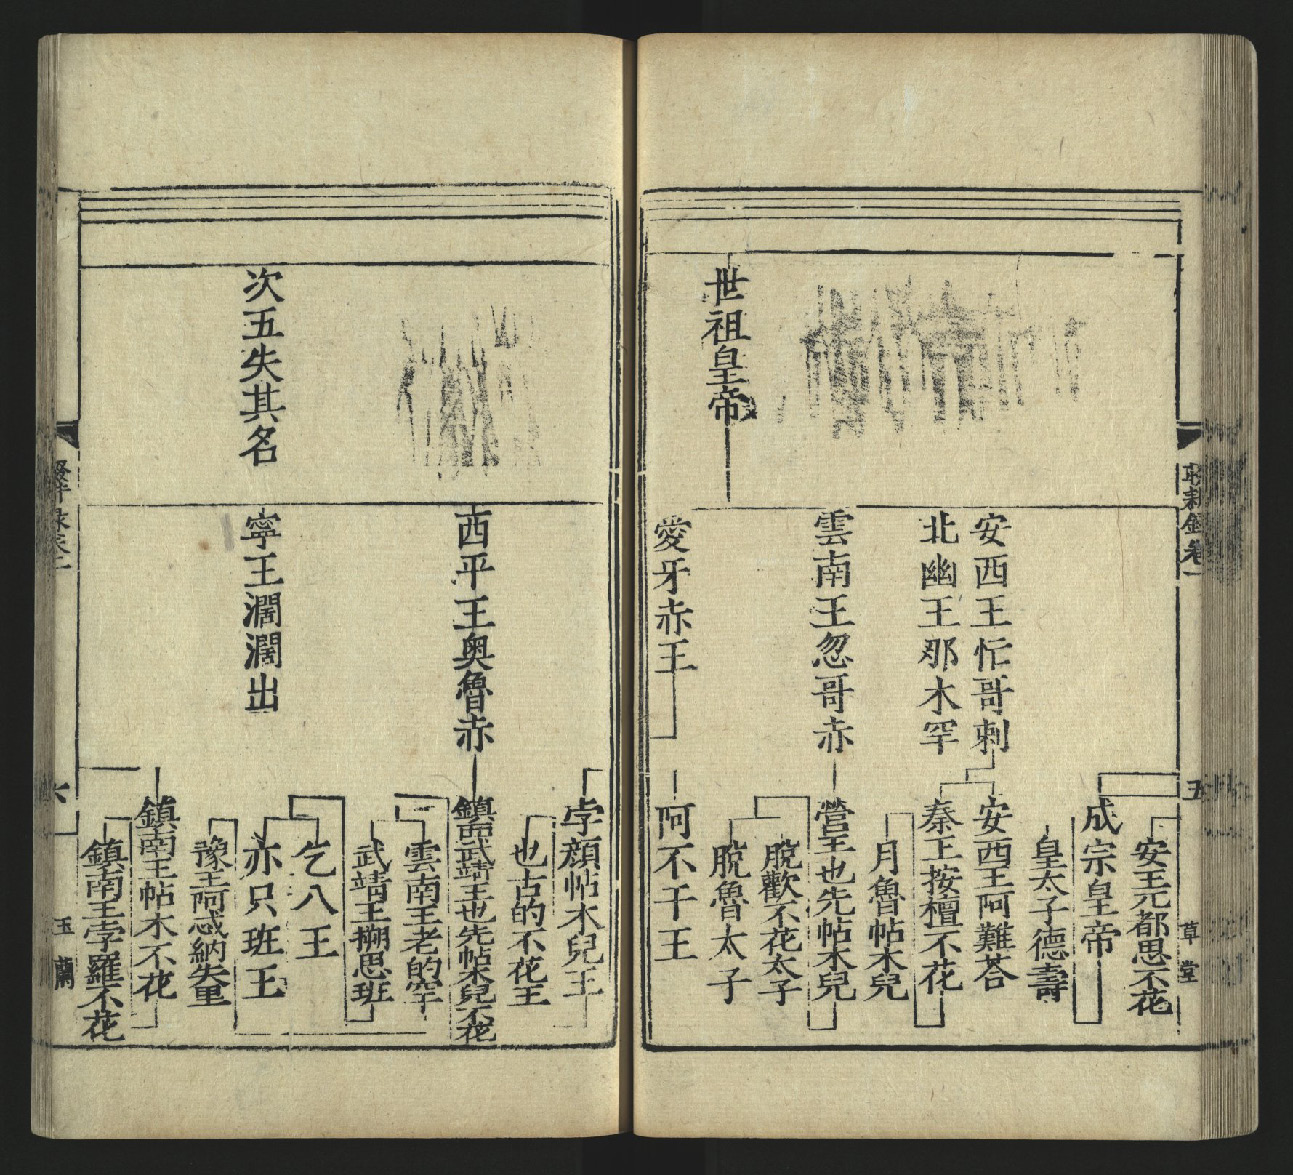 輟耕錄卷一
五
草堂
世祖皇帝
安西王忙哥剌
北幽王那木罕
雲南王忽哥赤
愛牙赤王
安王兀都思不花
成宗皇帝
皇太子德壽
安西王阿難荅
秦王按檀不花
月魯帖木兒
營王也先帖木兒
脫歡不花太子
脫魯太子
阿不干王
次五失其名
西平王奧魯赤
寧王濶濶出
孛顏帖木兒王
也古的不花王
鎮西武靖王也先帖木兒不花
雲南王老的罕
武靖王搠思班
乞八王
亦只班王
豫王阿忒納失里
鎮南王帖木不花
鎮南王孛羅不花
六
玉蘭